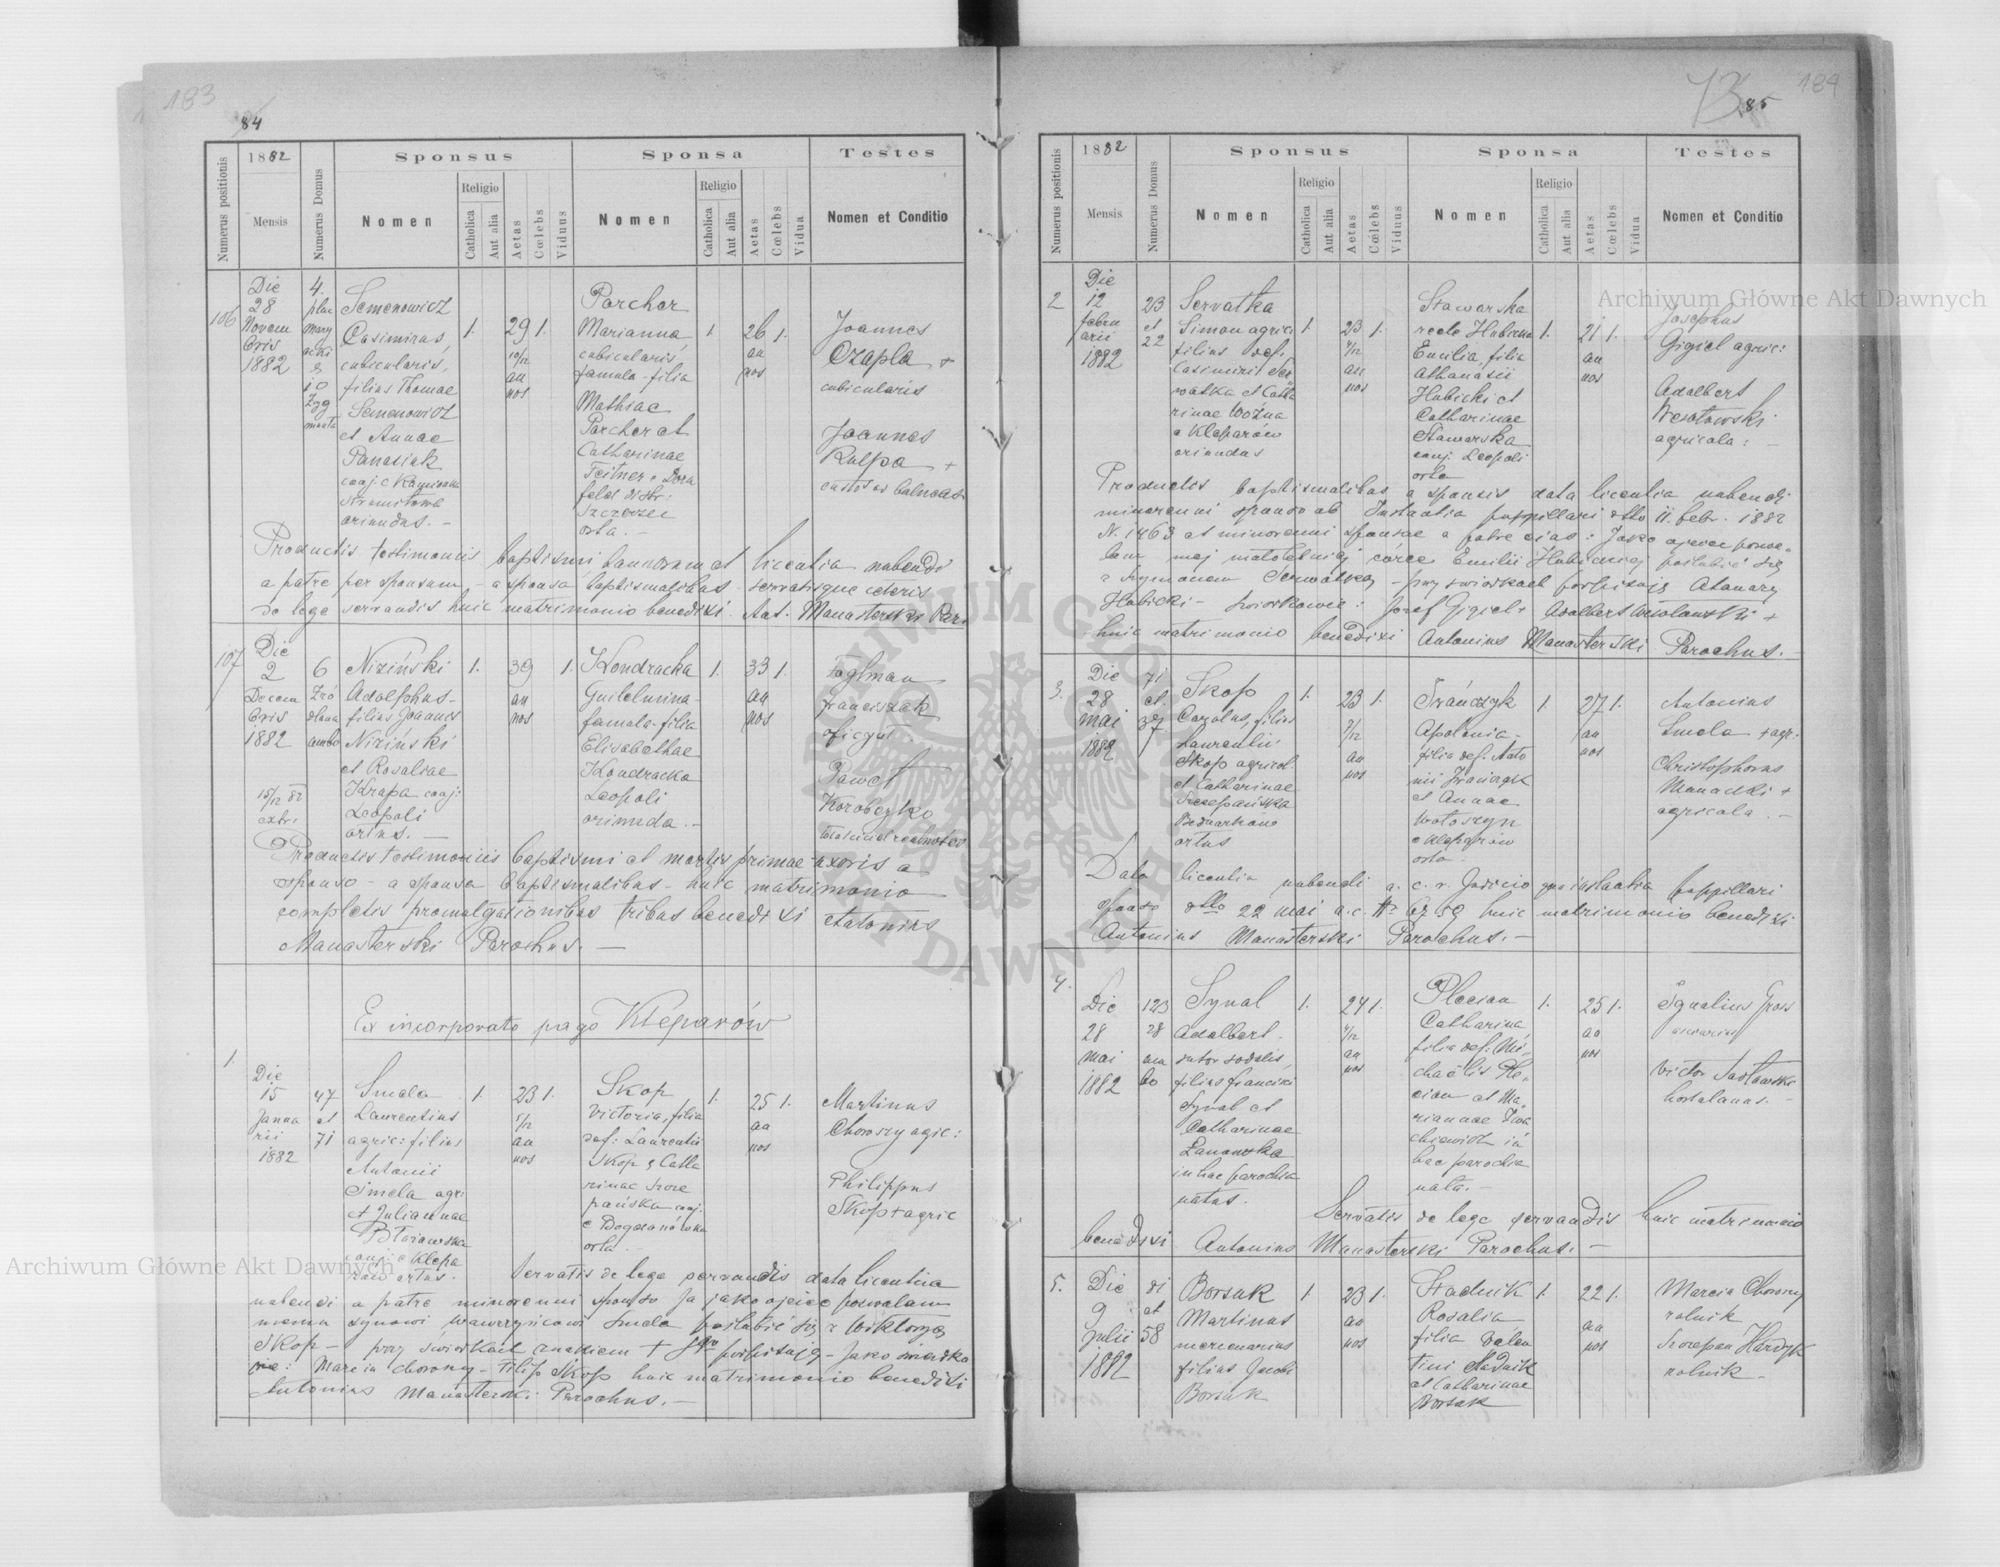 183
84
Numerus positionis
1882
Mensis
Numerus Domus
Sponsus
Nomen
Religio
Catholica
Aut alia
Aetas
Cœlebs
Viduus
Sponsa
Nomen
Religio
Catholica
Aut alia
Aetas
Cœlebs
Vidua
Testes
Nomen et Conditio
106
Die
28
Novem
bris
1882
4.
Semenowicz
Casimirus,
cubicularis,
filius Thomae
Semenowicz
et Annae
Panasiuk
oriundus. –
1.
29
10/12
an
nos
1.
Parcher
Marianna
cubicularis,
famula – filia
Mathiae
Parcher et
Catharinae
Szczerzec
orta. –
1.
26
an
nos
1.
Joannes
Czapla +
cubicularis
Joannes
Kulpa +
Productis testimoniis baptismi bannorum et licentia nubendi
a patre per sponsum, – a sponsa baptismalibus – servatisque ceteris
de lege servandis huic matrimonio benedixi. Ant. Manasterski Par.
107
Die
2
Decem
bris
1882
15/12 82
extr.
6
Źró
dlana
ambo
Niziński
Adolphus –
filius Joannis
Niziński
et Rosaliae
Krapa conj:
Leopoli
ortus. –
1.
39
an
nos
1.
Kondracka
Guilelmina –
famula – filia
Elisabethae
Kondracka
Leopoli
oriunda. –
1.
33
an
nos
1.
Foglman
Franciszek
Paweł
Korobczyko
Productis testimoniis baptismi et mortis primae uxoris a
sponso – a sponsa baptismalibus – huic matrimonio
completis promulgationibus tribus benedixi Antonius
Manasterski Parochus. –
Ex incorporato pago Kleparów
1.
Die
15
Janua
rii
1882
47
et
71
Smela
Laurentius
agric: filius
Antonii
Smela agri
et Juliannae
conj: e Klepa
rów ortus. –
1.
23
5/12
an
nos
1.
Skop
Victoria, filia
def: Laurentii
Skop & Catha
rinae Szcze
pańska conj:
e Bogdanówka
orta. –
1.
25
an
nos
1.
Martinus
Chorozy agric:
Philippus
Skop + agric
Servatis de lege servandis data licentia
nubendi a patre minorenni sponso Ja jako ojciec pozwalam
memu synowi Wawrzyńcowi Smela poślubić się z Wiktoryą
Skop – przy świadkach znakiem + się podpisuję – Jako świadko
wie: Marcin Chorozy – Filip Skop huic matrimonio benedixi
Antonius Manasterski Parochus. –
184
73
85
Numerus positionis
1882
Mensis
Numerus Domus
Sponsus
Nomen
Religio
Catholica
Aut alia
Aetas
Cœlebs
Viduus
Sponsa
Nomen
Religio
Catholica
Aut alia
Aetas
Cœlebs
Vidua
Testes
Nomen et Conditio
2
Die
12
febru
arii
1882
23
et
22
Servatka
Simon agric
filius def.
Casimiri Ser
watka et Catha
rinae Woźna
e Kleparów
oriundus
1.
23
an
nos
1.
Stawarska
recte Hubicka
Emilia, filia
Athanasii
Hubicki et
Catharinae
Stawarska
conj. Leopoli
orta
1.
21
an
nos
1.
Josephus
Gigiel agric:
Adalbert
Wesołowski
agricola: –
Productis baptismalibus a sponsis data licentia nubendi
minorenni sponso ab Instantia pupillari dtto 11. febr. 1882
N. 1463 et minorenni sponsae a patre ejus: Jako ojciec pozwa-
lam mej małoletniej córce Emilii Hubickiej poślubić się
z Szymonem Serwatką – przy świadkach podpisuję Atanazy
Hubicki – świadkowie: Józef Gigiel + Adalbert Wesołowski +
huic matrimonio benedixi Antonius Manasterski Parochus. –
3.
Die
28
mai
1882
71
et
37
Skop
Carolus, filius
Laurentii
Skop agricol.
et Catharinae
Szczepańska
ortus
1.
23
an
nos
1.
Frańczyk
Apolonia –
filia def. Anto
nii Frańczyk
et Annae
Wołoszyn
e Kleparów
orta
1.
27
an
nos
1.
Antonius
Smela + agr.
Christophorus
agricola. –
Data licentia nubendi a. c. r. Judicio qua instantia pupillari
sponso dtto 22 mai a. c. N: 6759 huic matrimonio benedixi
Antonius Manasterski Parochus. –
4.
Die
28
mai
1882
123
28
am
bo
Synal
Adalbert.
sutor sodalis,
filius Francisci
Synal et
Catharinae
Łanowska
in hac parochia
natus.
1.
24
an
nos
1.
Plecian
Catharina,
filia def: Mi-
chaëlis Ple-
cian et Ma-
riannae
chiewicz in
hac parochia
nata. –
1.
25
an
nos
1.
Ignatius Gross
Victor
hortulanus. –
Servatis de lege servandis huic matrimonio
benedixi Antonius Manasterski Parochus. –
5.
Die
9
Julii
1882
et
58
Borsuk
Martinus
mercenarius
filius Jacobi
Borsuk
1.
23
an
nos
1.
Stadnik
Rosalia
filia Valen
tini Stadnik
et Catharinae
Borsuk
1.
22
an
nos
1.
Marcin Chorozy
rolnik
Szczepan Hardyk
rolnik –
Archiwum Główne Akt Dawnych
Archiwum Główne Akt Dawnych
ARCHIWUM GŁÓWNE
AKT DAWNYCH